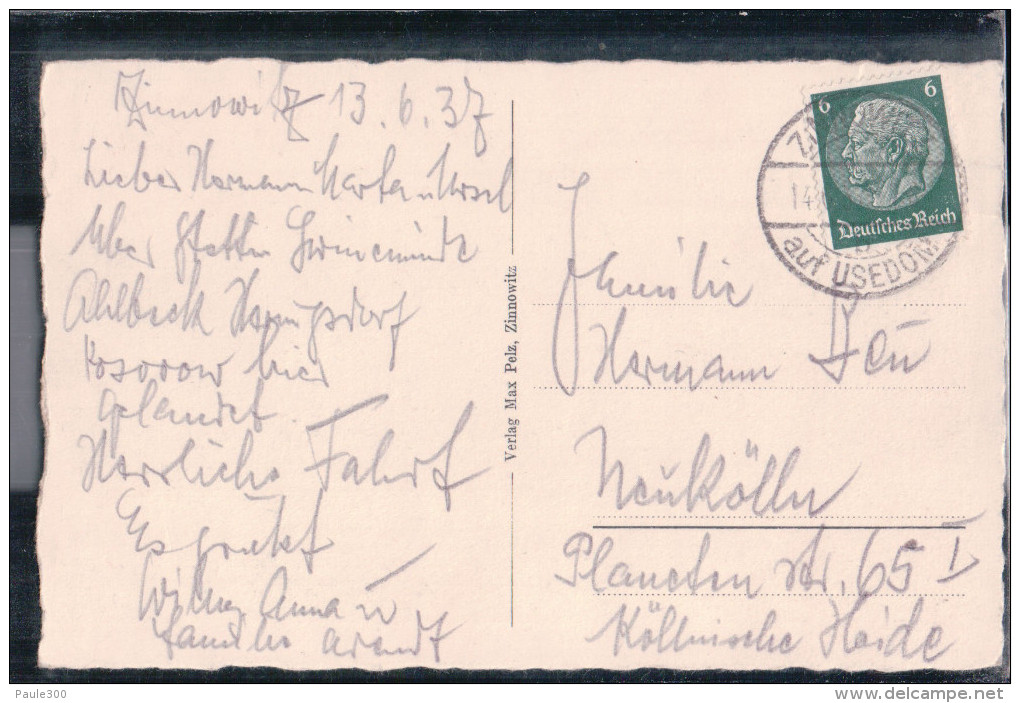 Zinnowitz 13.6.37
Lieber Hermann Marta u Ursel
Über Stettin Swinemünde
Ahlbeck Heringsdorf
Kosorow hier
gelandet.
Herrliche Fahrt
Es grüßt
Anna u
Familie Arendt
Verlag Max Pelz, Zinnowitz
6 6
Deutsches Reich
auf USEDOM
Familie
Hermann
Neukölln
Planeten str. 65 I
Köllnische Heide
Paule300
www.delcampe.net